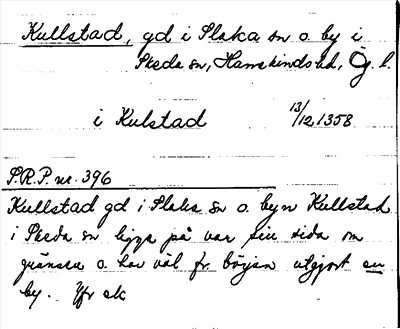 Kullstad, gd i Slaka sn o. by i
Skeda sn, Hanekinds hd, Ög. l.
i Kulstad 13/12 1358
S.R.P. nr. 396
Kullstad gd i Slaka sn o. byn Kullstad
i Skeda sn ligga på var sin sida om
gränsen o. har väl fr. början utgjort en
by. Jfr ek